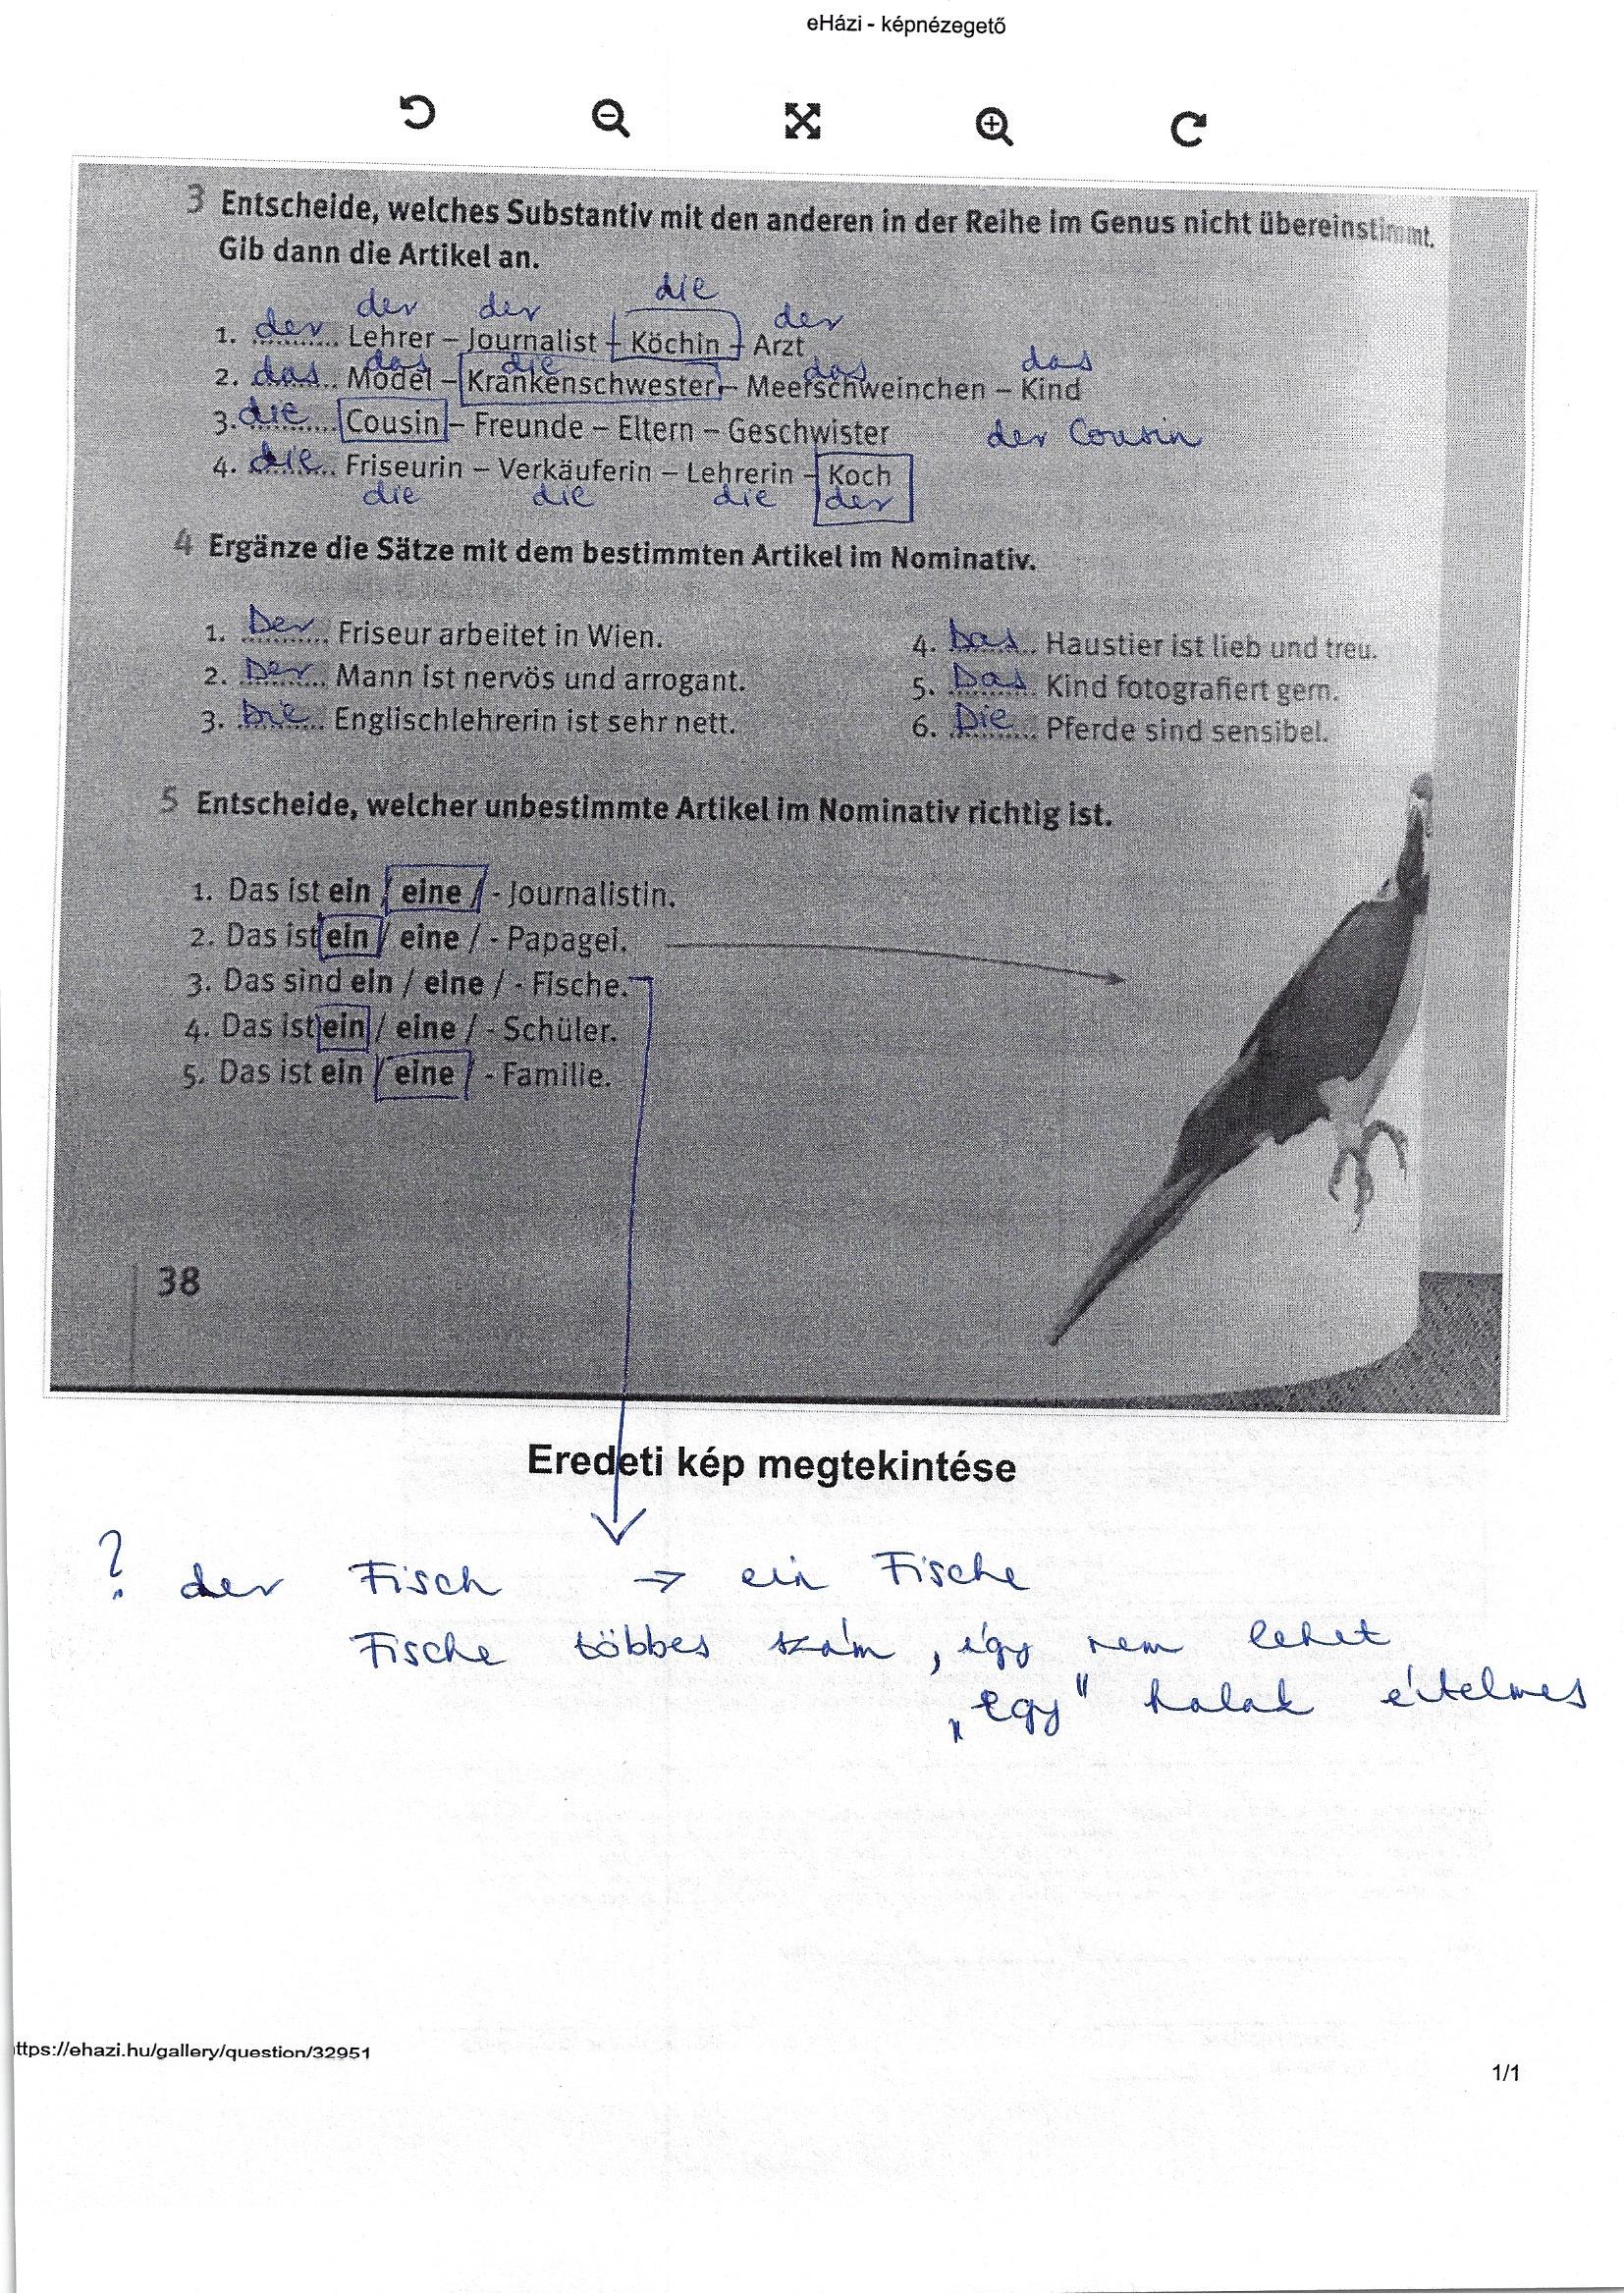 eHázi - képnézegető
3 Entscheide, welches Substantiv mit den anderen in der Reihe im Genus nicht übereinstimmt.
Gib dann die Artikel an.
der der die der
1. der Lehrer – Journalist – Köchin – Arzt
das die das das
2. das Model – Krankenschwester – Meerschweinchen – Kind
3. die Cousin – Freunde – Eltern – Geschwister der Cousin
4. die Friseurin – Verkäuferin – Lehrerin – Koch
die die die der
4 Ergänze die Sätze mit dem bestimmten Artikel im Nominativ.
1. Der Friseur arbeitet in Wien.
2. Der Mann ist nervös und arrogant.
3. Die Englischlehrerin ist sehr nett.
4. Das Haustier ist lieb und treu.
5. Das Kind fotografiert gern.
6. Die Pferde sind sensibel.
5 Entscheide, welcher unbestimmte Artikel im Nominativ richtig ist.
1. Das ist ein / eine / - Journalistin.
2. Das ist ein / eine / - Papagei.
3. Das sind ein / eine / - Fische.
4. Das ist ein / eine / - Schüler.
5. Das ist ein / eine / - Familie.
38
Eredeti kép megtekintése
? der Fisch → ein Fische
Fische többes szám, így nem lehet
„egy" halak értelmes
ttps://ehazi.hu/gallery/question/32951
1/1